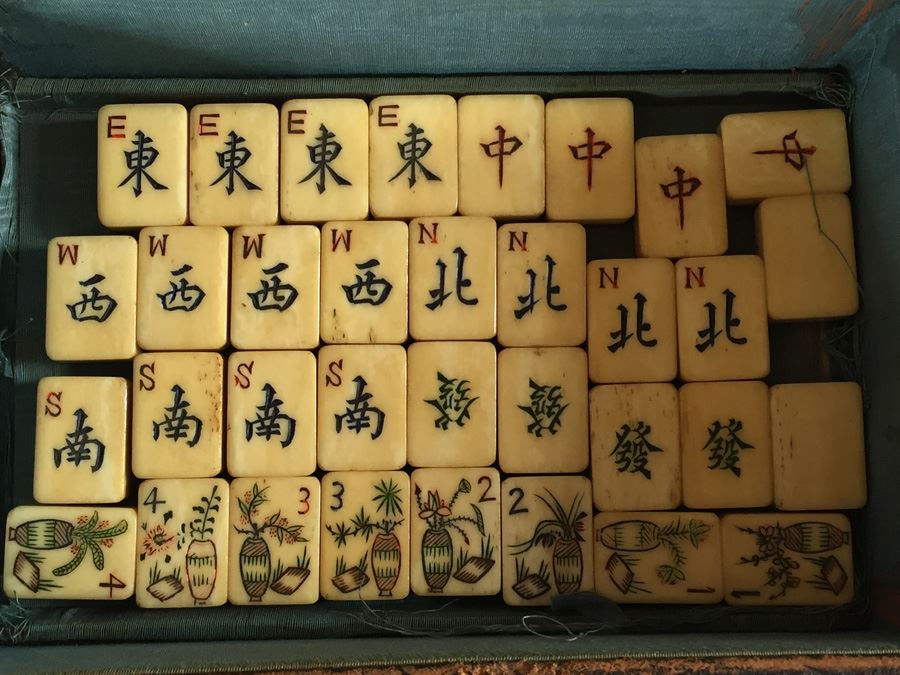 E E E E
東 東 東 東 中 中 中 中
W W W W N N N N
西 西 西 西 北 北 北 北
S S S S
南 南 南 南 發 發 發 發
4 4 3 3 2 2 1